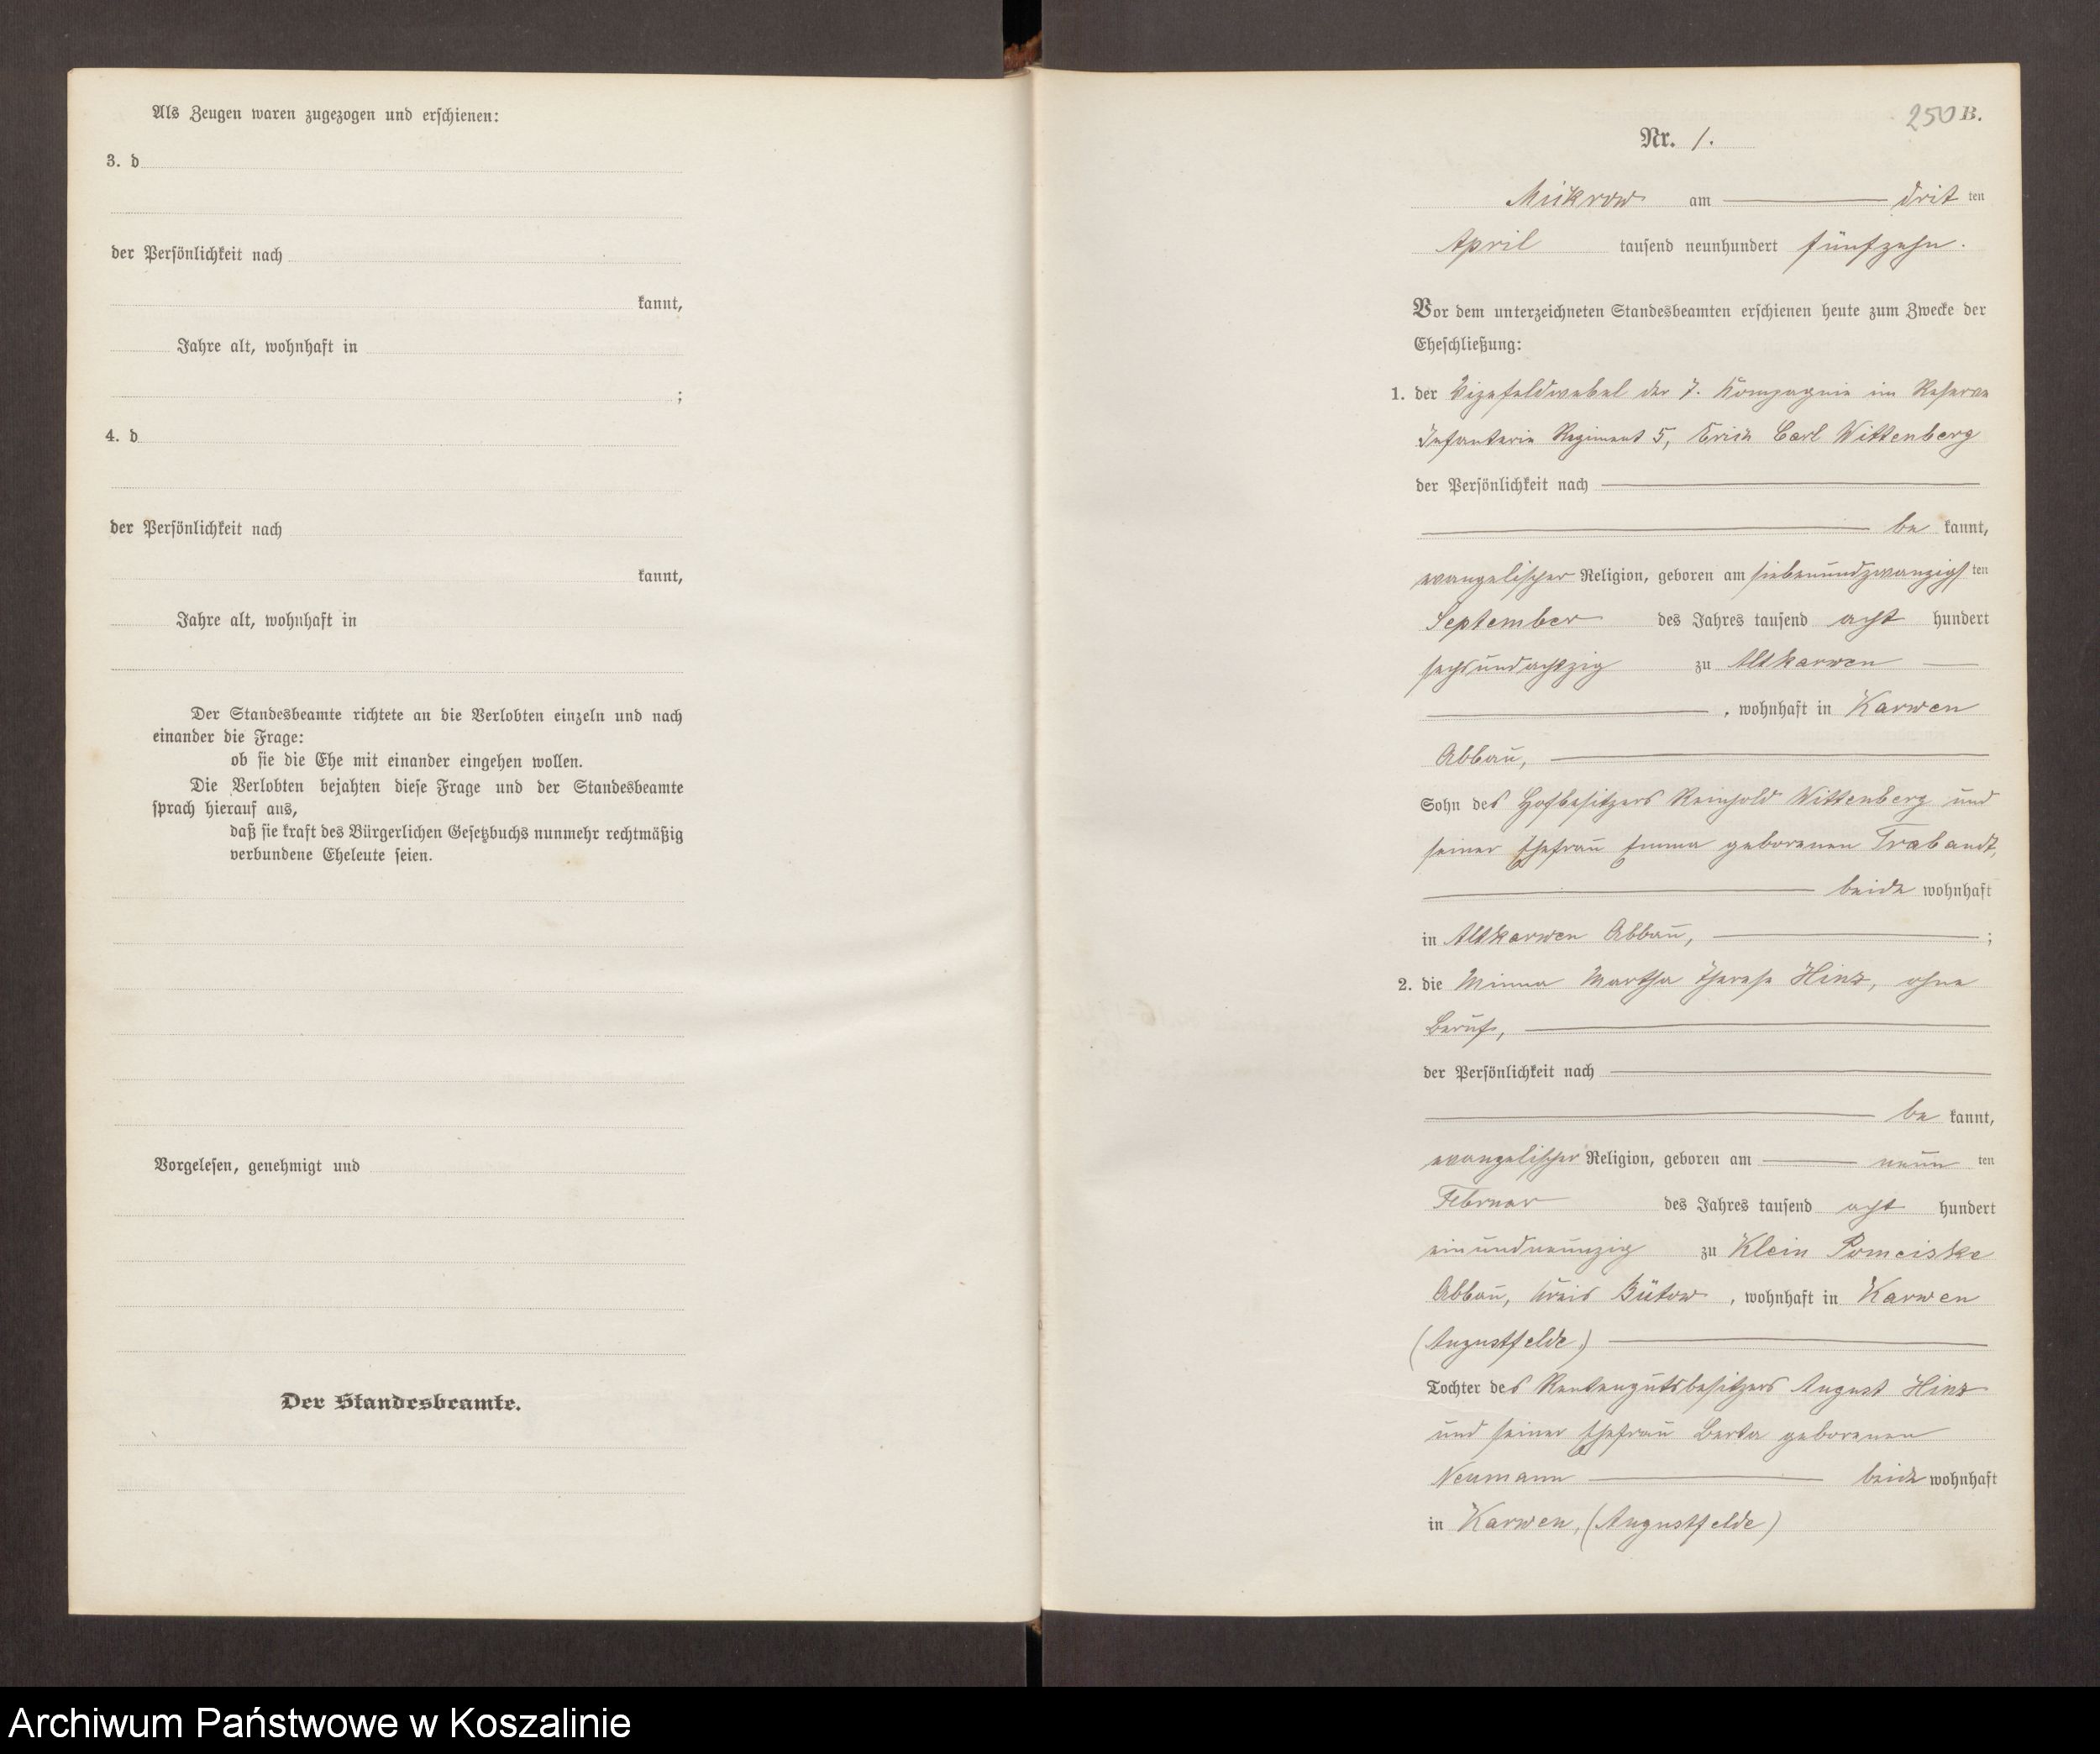 Als Zeugen waren zugezogen und erschienen:
3. d
der Persönlichkeit nach
kannt,
Jahre alt, wohnhaft in
;
4. d
der Persönlichkeit nach
kannt,
Jahre alt, wohnhaft in
Der Standesbeamte richtete an die Verlobten einzeln und nach
einander die Frage:
ob sie die Ehe mit einander eingehen wollen.
Die Verlobten bejahten diese Frage und der Standesbeamte
sprach hierauf aus,
daß sie kraft des Bürgerlichen Gesetzbuchs nunmehr rechtmäßig
verbundene Eheleute seien.
Vorgelesen, genehmigt und
Der Standesbeamte.
250 B.
Nr. 1.
Mickrow am dritten
April tausend neunhundert fünfzehn.
Vor dem unterzeichneten Standesbeamten erschienen heute zum Zwecke der
Eheschließung:
1. der Vizefeldwebel der 7. Kompagnie im Reserve
Infanterie Regiment 5, Erich Carl Wittenberg
der Persönlichkeit nach
be kannt,
evangelischer Religion, geboren am siebenundzwanzigsten
September des Jahres tausend acht hundert
sechsundachtzig zu Altkarwen
, wohnhaft in Karwen
Abbau,
Sohn des Hofbesitzers Reinhold Wittenberg und
seiner Ehefrau Emma geborenen Trabandt,
beide wohnhaft
in Altkarwen Abbau, ;
2. die Minna Martha Therese Hinz, ohne
Beruf,
der Persönlichkeit nach
be kannt,
evangelischer Religion, geboren am neun ten
Februar des Jahres tausend acht hundert
einundneunzig zu Klein Pomeiske
Abbau, Kreis Bütow, wohnhaft in Karwen
(Augustfelde)
Tochter des Rentengutsbesitzers August Hinz
und seiner Ehefrau Berta geborenen
Neumann beide wohnhaft
in Karwen, (Augustfelde)
Archiwum Państwowe w Koszalinie